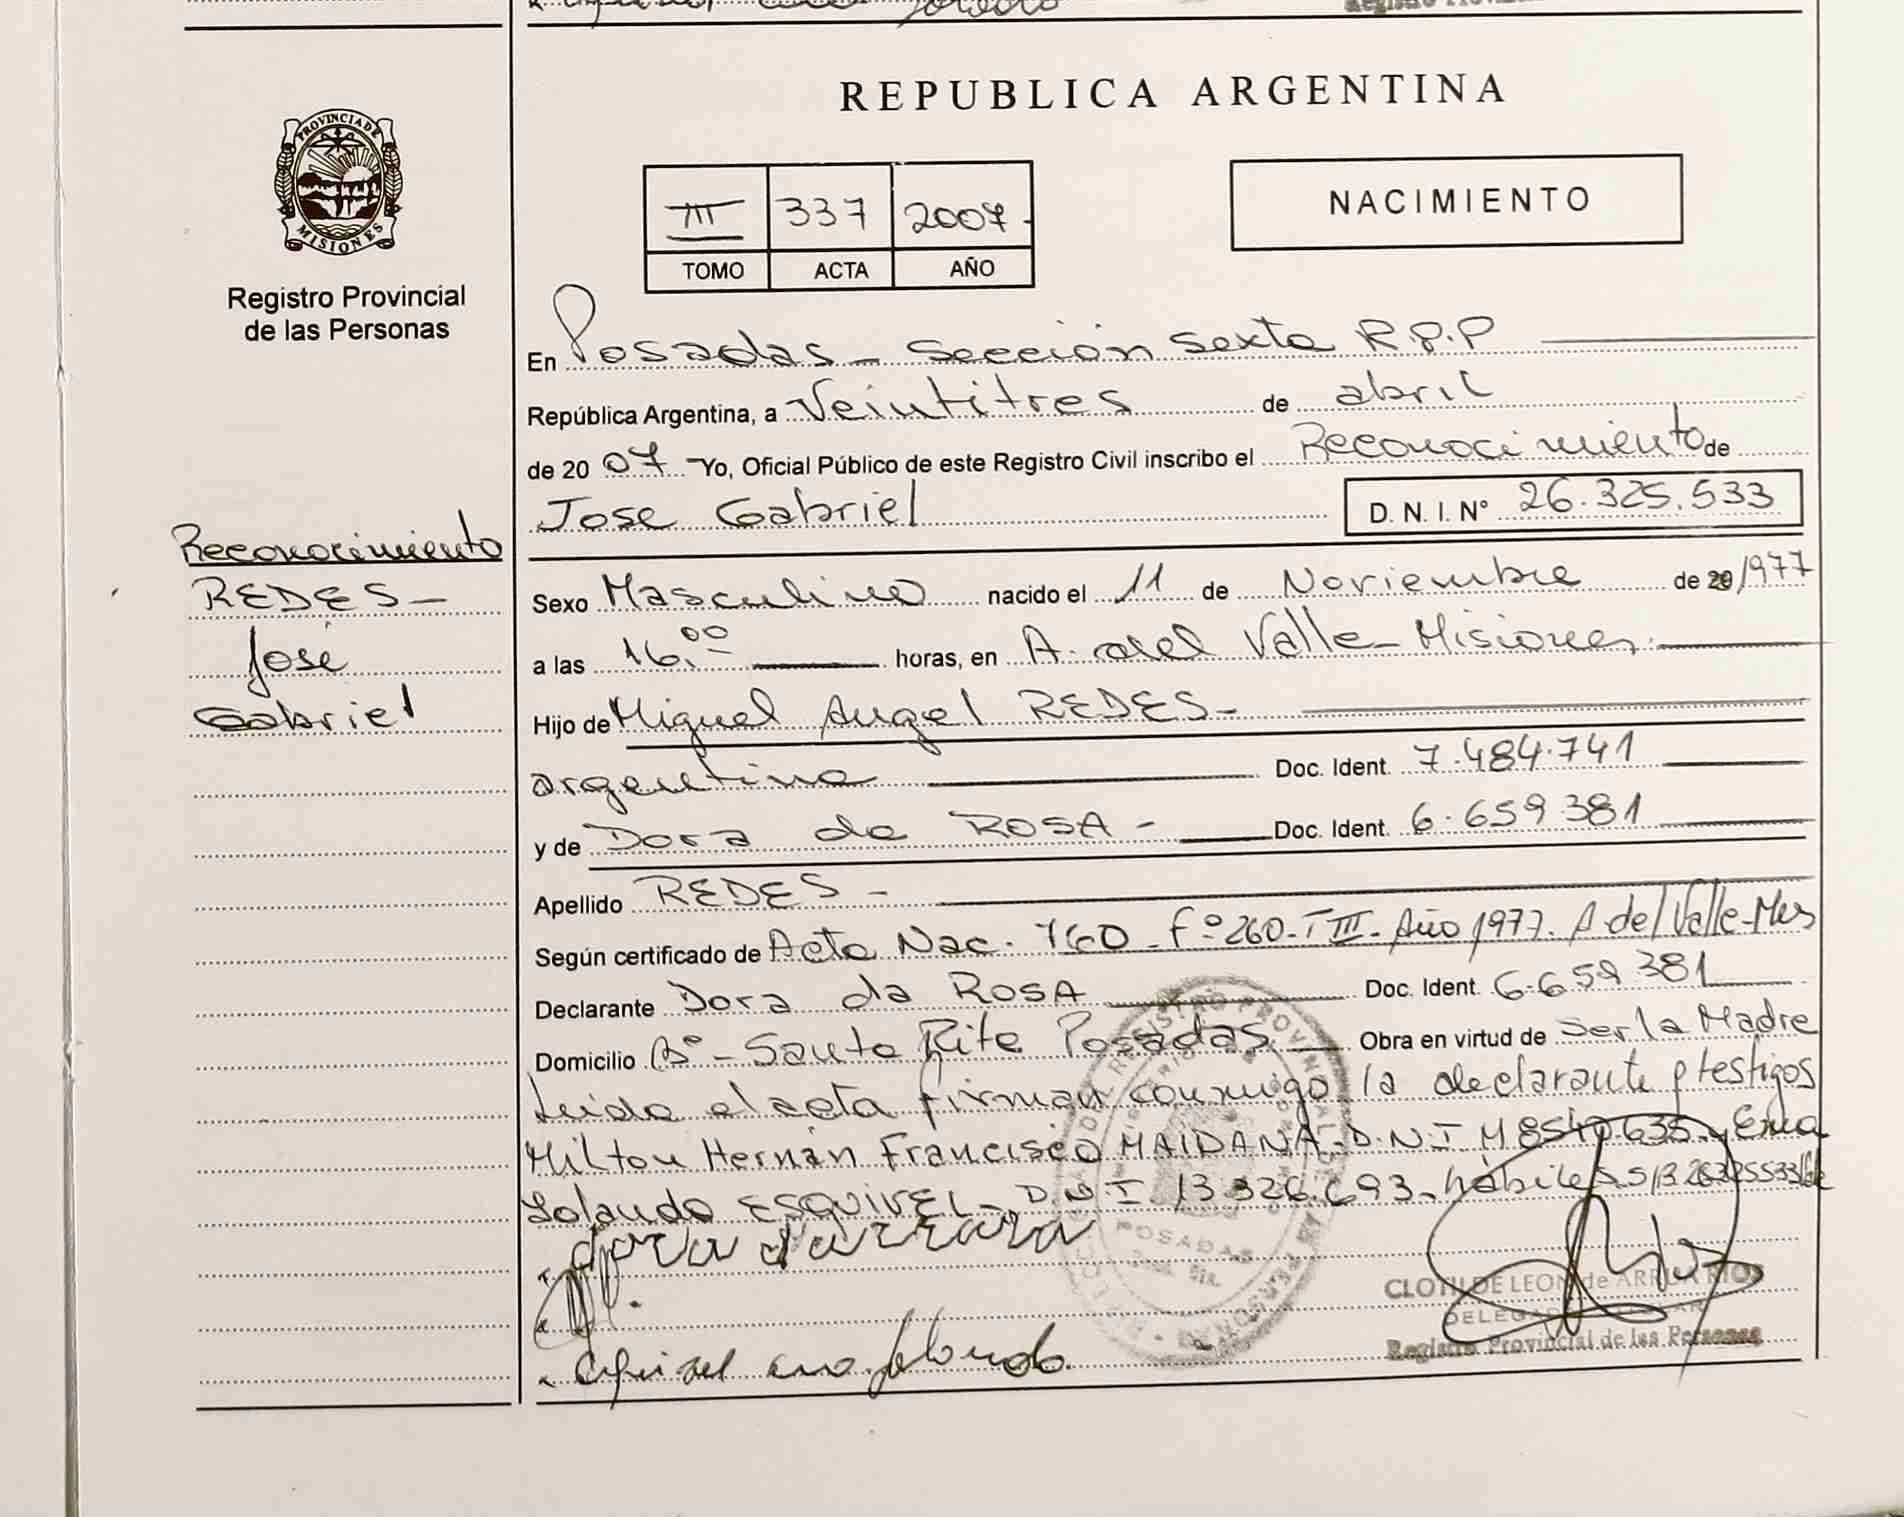 REPUBLICA ARGENTINA
PROVINCIA DE
MISIONES
Registro Provincial
de las Personas
III 337 2007
TOMO ACTA AÑO
NACIMIENTO
En Posadas - Sección Sexta R.P.P
República Argentina, a Veintitres de abril
de 20 07 Yo, Oficial Público de este Registro Civil inscribo el Reconocimiento de
Jose Gabriel D. N. I. Nº 26.325.533
Reconocimiento
REDES -
José
Gabriel
Sexo Masculino nacido el 11 de Noviembre de 20/1977
a las 16.00 horas, en A. del Valle - Misiones.
Hijo de Miguel Angel REDES -
argentino Doc. Ident. 7.484.741
y de Dora da ROSA - Doc. Ident. 6.659 381
Apellido REDES -
Según certificado de Acta Nac. 760 - Fº 260 - T III - Año 1977. A del Valle - Mnes
Declarante Dora da ROSA Doc. Ident. 6.659 381
Domicilio Bº - Santa Rita Posadas Obra en virtud de Ser la Madre
Leida el acta firman conmigo la declarante y testigos
Milton Hernán Francisco MAIDANA - D.N.I M 8540.635 y Ema
Yolanda ESQUIVEL - D.N.I 13.326.693 - hábiles S/B 26325533
POSADAS
CLOTILDE LEON de ARRUA RIOS
DELEGADA TITULAR
Registro Provincial de las Personas